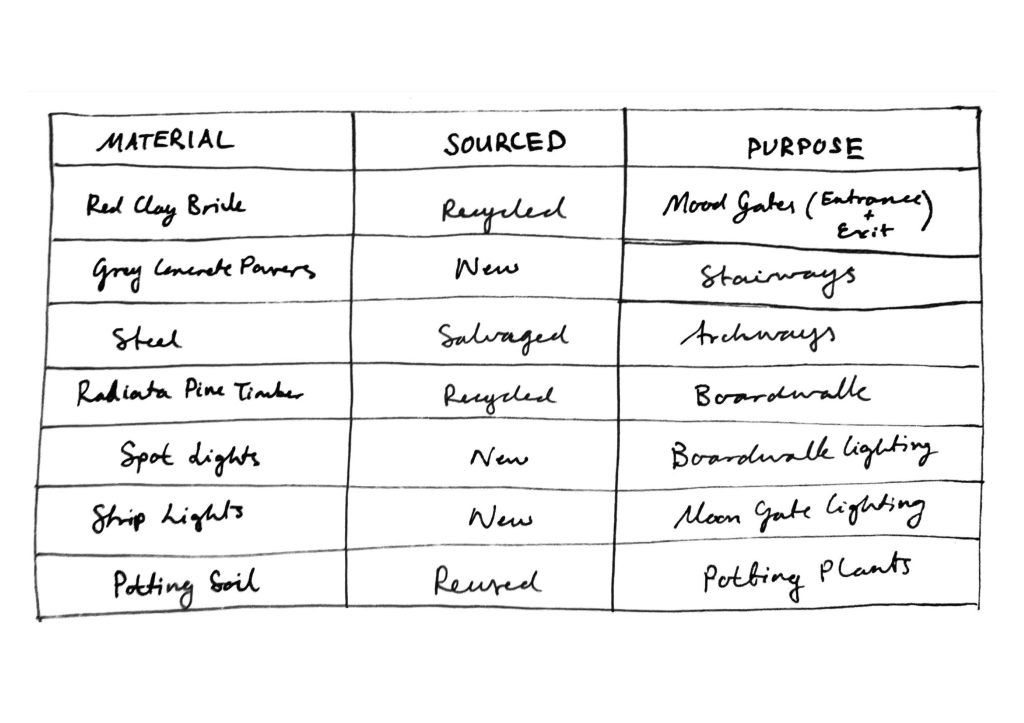 MATERIAL SOURCED PURPOSE
Red Clay Brick Recycled Mood Gates (Entrance
+
Exit)
Grey Concrete Pavers New Stairways
Steel Salvaged Archways
Radiata Pine Timber Recycled Boardwalk
Spot Lights New Boardwalk lighting
Strip Lights New Moon Gate lighting
Potting Soil Reused Potting Plants